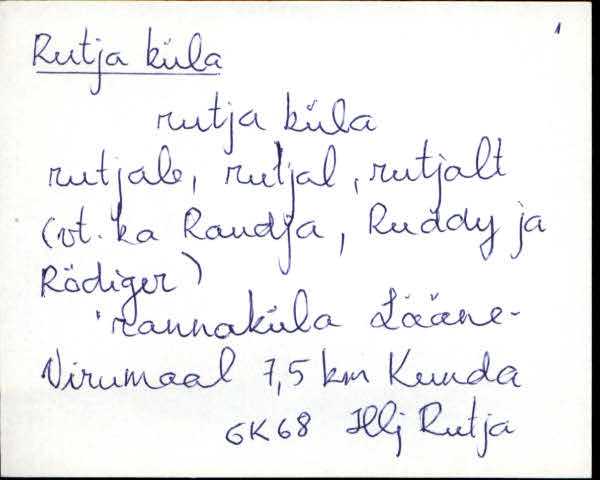 1
Rutja küla
rutja küla
rutjale, rutjal, rutjalt
(vt. ka Raudja, Ruddy ja
Rödiger)
'rannaküla Lääne-
Virumaal 7,5 km Kunda
GK68 Hlj Rutja